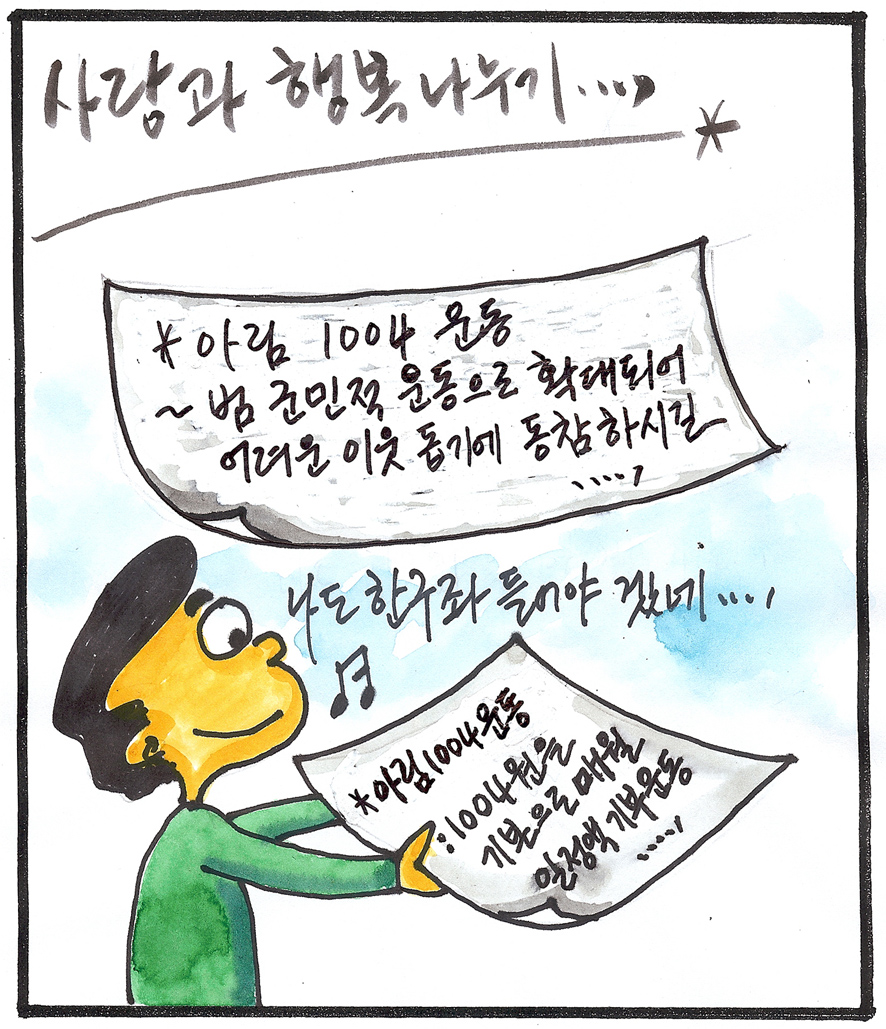 사랑과 행복 나누기.....,
*
* 아림 1004 운동
~ 범 군민적 운동으로 확대되어
어려운 이웃 돕기에 동참하시길
....,
나도 한구좌 들어야 겠네....,
* 아림1004운동
:1004원을
기본으로 매월
일정액 기부운동
.....,